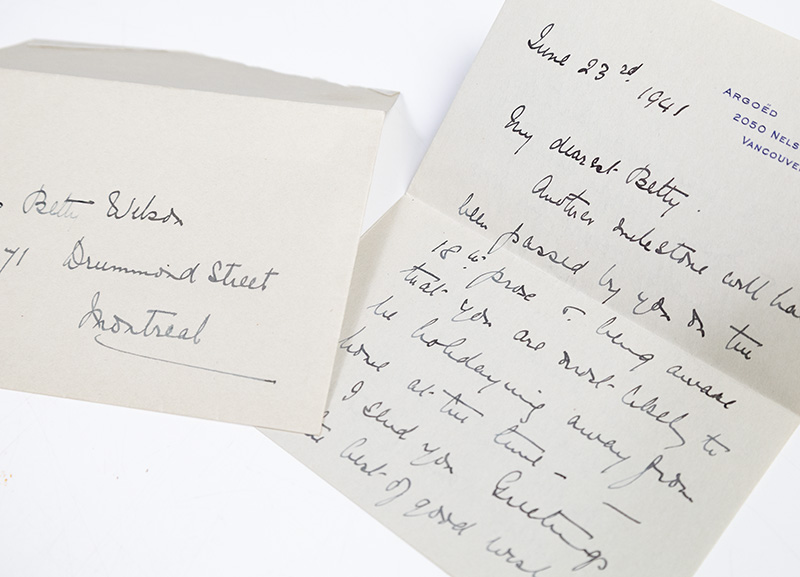 Beth Wilson
71 Drummond Street
Montreal
June 23rd, 1941
ARGOËD
2050 NELS
VANCOUVE
My dearest Betty.
Another milestone will ha
been passed by you on the
18th prox & being aware
that you are most likely to
be holidaying away from
home at the time –
I send you Greetings
the best of good wish